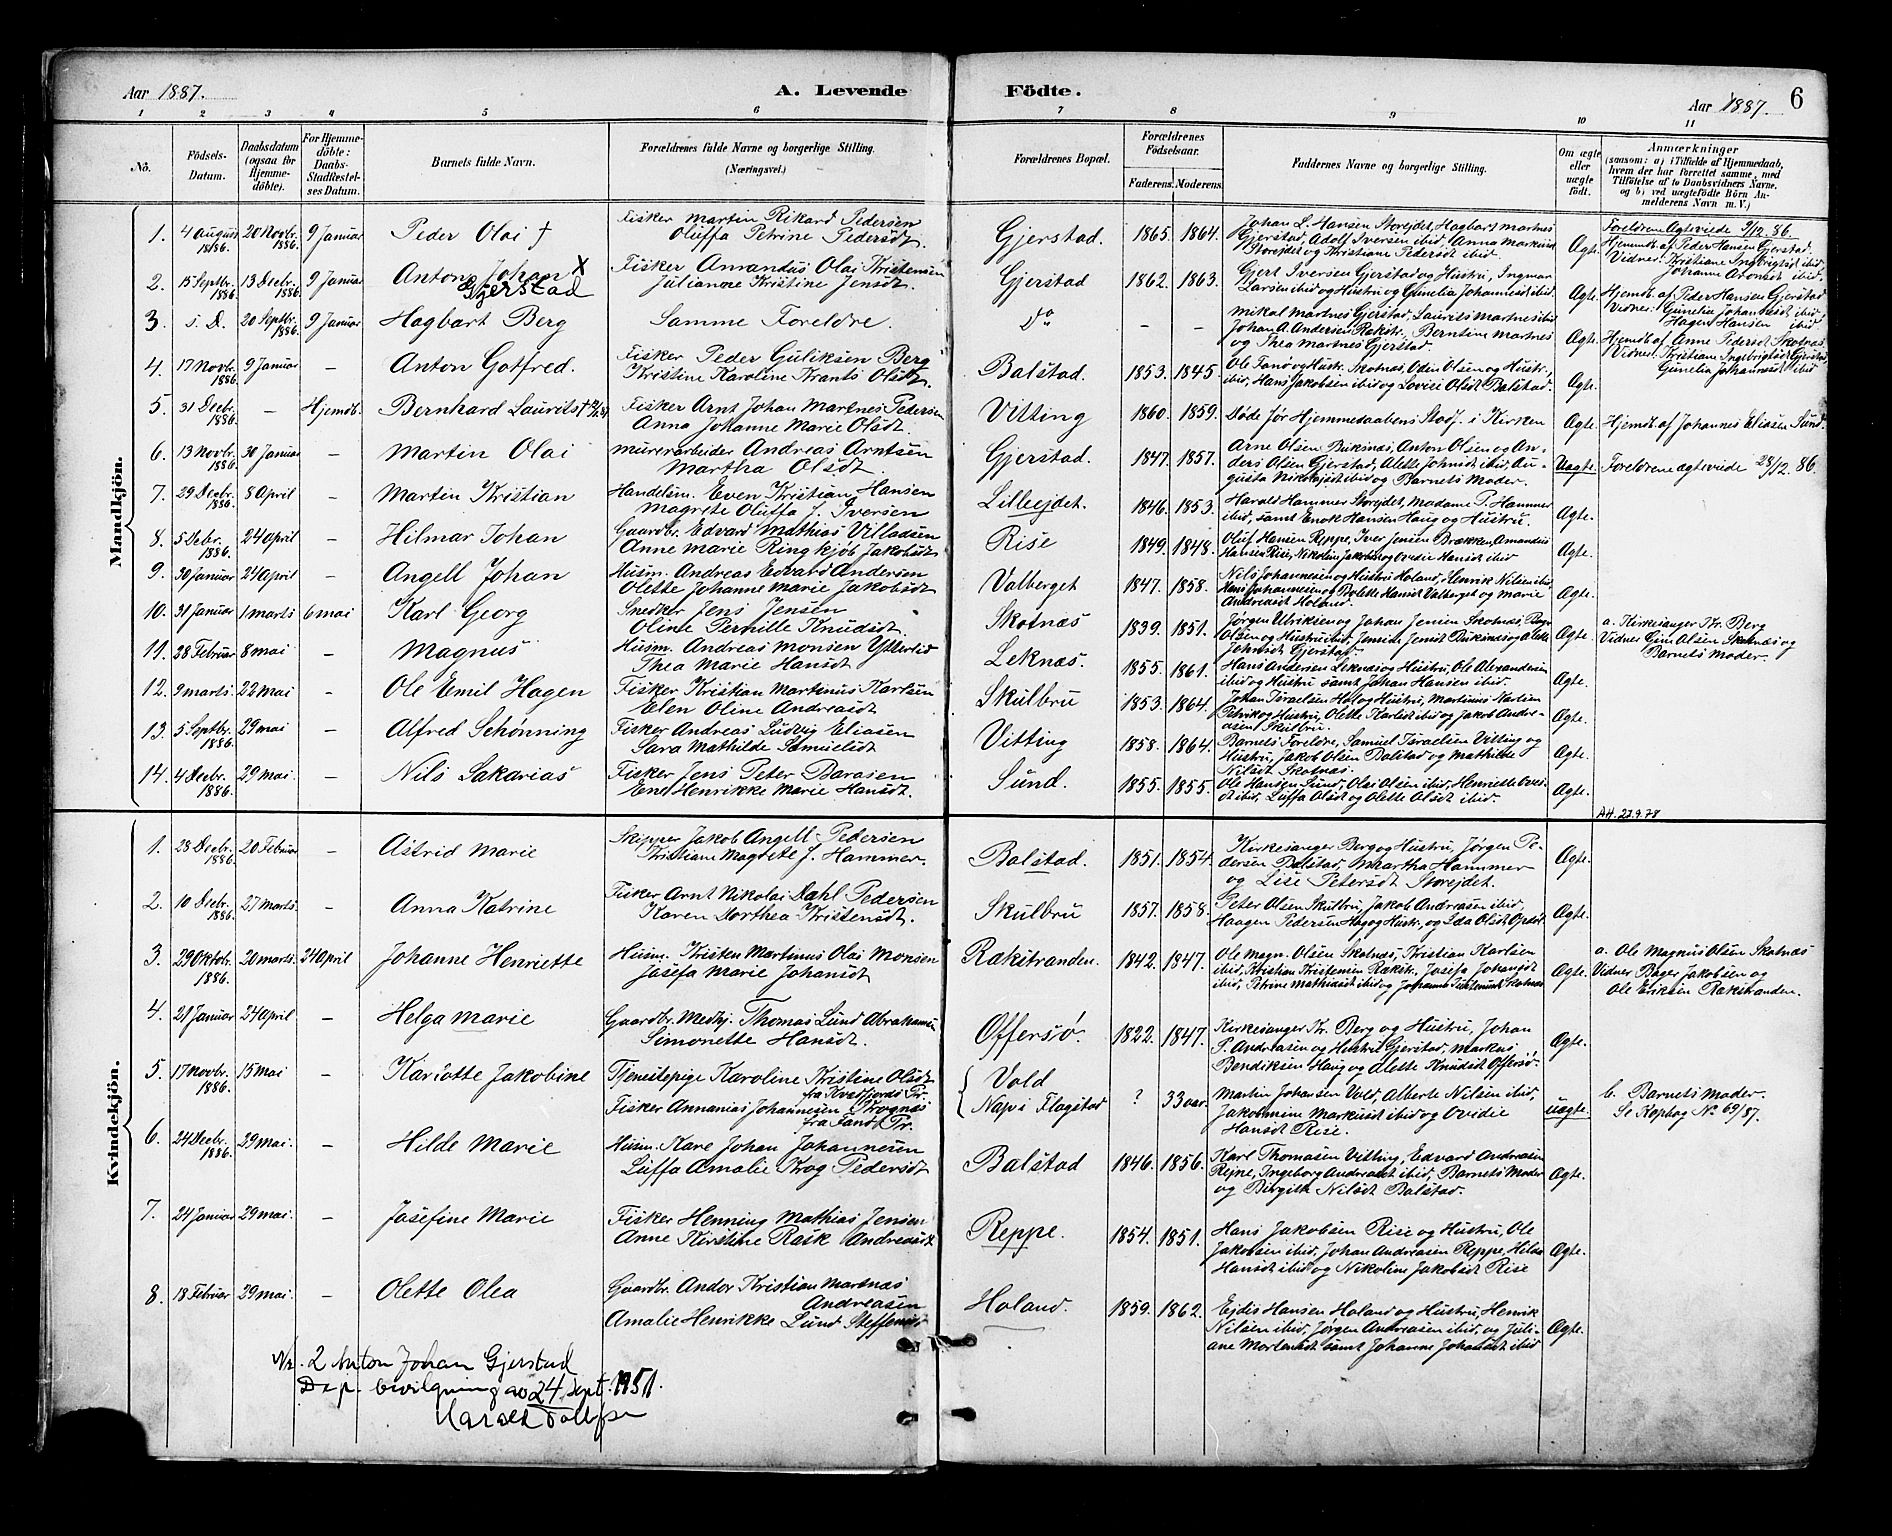 Aar 1887.
A. Levende
Födte.
Aar 1887.
6
1 2 3 4 5 6 7 8 9 10 11
No.
Födsels-
Datum.
Daabsdatum
(ogsaa for
Hjemme-
döbte).
For Hjemme-
döbte:
Daabs-
Stadfæstel-
ses Datum.
Barnets fulde Navn.
Forældrenes fulde Navne og borgerlige Stilling.
(Næringsvei.)
Forældrenes Bopæl.
Forældrenes
Födselsaar.
Faderens. Moderens.
Faddernes Navne og borgerlige Stilling.
Om ægte
eller
uægte
födt.
Anmærkninger
(saasom: a) i Tilfælde af Hjemmedaab,
hvem der har forrettet samme, med
Tilföielse af to Daabsvidners Navne,
og b) ved uægtefödte Börn An-
melderens Navn m. V.)
Mandkjön.
1. 4 August 1886. 20 Novbr. 1886. 9 Januar Peder Olai †
Fisker Martin Rikard Pedersen
Oluffa Petrine Pedersdt.
Gjerstad. 1865. 1864.
Johan L. Hansen Storejdet, Hagbart Martnes
Gjerstad, Adolf Iversen ibid, Anna
Storejdet og Kristiane Pedersdt ibid.
Ægte.
Foreldrene Ægteviede 9/12 86.
Hjemmdt. af Peder Hansen Gjerstad,
Vidner: Kristiane Ingebrigtsdt ibid
Johanna Aronsdt ibid.
2. 15 Septbr. 1886. 13 Decbr. 1886. 9 Januar Anton Johan X
Gjerstad
Fisker Amandus Olai Kristensen
Julianne Kristine Jensdt.
Gjerstad 1862. 1863.
Gjert Iversen Gjerstad og Hustru, Ingmar
Larsen ibid og Hustru og Gunelia Johannesdt ibid.
Ægte.
Hjemdt. af Peder Hansen Gjerstad
Vidner: Gunelia Johannesdt ibid
Hagen Hansen ibid
3. s. D. 20 Septbr. 1886. 9 Januar Hagbart Berg
Samme Foreldre.
Do - -
Mikal Martnes Gjerstad, Laurits Martnes ibid
Johan A. Andersen Rakstr., Berntine Martnes
og Thea Martnes Gjerstad.
Ægte.
Hjemdt. af Anne Pedersdt Skotnæs,
Vidner: Kristiane Ingebrigtsdt Gjerstad,
Gunelia Johannesdt ibid
4. 17 Novbr. 1886. 9 Januar - Anton Gotfred.
Fisker Peder Guliksen Berg
Kristine Karoline Krants Olsdt.
Balstad. 1853. 1845.
Ole Tanø og Hustr. Skotnæs, Oden Olsen og Hustr.
ibid, Hans Jakobsen ibid og Lovise Olsdt Balstad.
Ægte.
5. 31 Decbr. 1886. - Hjemdb. Bernhard Laurits †
Fisker Arnt Johan Martnes Pedersen
Anna Johanne Marie Olsdt.
Vitting 1860. 1859.
Døde før Hjemmedaabens Stadf. i Kirken
Ægte.
Hjemdt. af Johannes Eliasen Sund.
6. 13 Novbr. 1886. 30 Januar - Martin Olai
Murerarbeider Andreas Arntsen
Martha Olsdt.
Gjerstad. 1847. 1857.
Arne Olsen Buksnæs, Anton Olsen og An-
ders Olsen Gjerstad, Alette Johnsdt ibid, Au-
gusta Nikolajsdt ibid og Barnets Moder.
Uægte.
Foreldrene ægteviede 28/12. 86.
7. 29 Decbr. 1886. 8 April - Martin Kristian
Handelsm. Even Kristian Hansen
Magrete Oluffa J. Iversen
Lilleejdet. 1846. 1853.
Harald Hammer Storejdet, Madame P. Hammer
ibid, samt Enok Hansen Haug og Hustru.
Ægte.
8. 5 Debr. 1886. 24 April - Hilmar Johan
Gaardbr. Edvard Mathias Villadsen
Anne Marie Ringkjøb Jakobsdt
Rise 1849. 1848.
Oluf Hansen Reppe, Iver Jensen Brækken, Amandus
Hansen Rise, Nikoline Jakobsdt og Ovidie Hansdt ibid
Ægte.
9. 30 Januar 24 April - Angell Johan
Husm. Andreas Edvard Andersen
Olette Johanne Marie Jakobsdt
Valberget 1847. 1858.
Nils Johannesen og Hustru Holand, Henrik Nilsen ibid,
Hans Johannesen og Bolette Hansdt Valberget og Marie
Andreasdt Holand.
Ægte.
10. 31 Januar 1 Marts 6 Mai Karl Georg
Snedker Jens Jensen
Oline Pernille Knudsdt.
Skotnæs 1839. 1851.
Jørgen Ulriksen og Johan Jensen Skotnæs,
Olsen og Hustru ibid, Jensine Jensdt Buksnæs og Alette
Johnsdt Gjerstad.
Ægte.
a. Kirkesanger Kr. Berg
Vidner Olsen Skotnæs og
Barnets Moder.
11. 28 Februar 8 Mai - Magnus
Husm. Andreas Monsen Ytterlid
Thea Marie Hansdt
Leknæs. 1855. 1861.
Hans Andersen Leknæs og Hustru, Ole Alexandersen
ibid og Hustru samt Johan Hansen ibid.
Ægte.
12. 9 Marts. 22 Mai - Ole Emil Hagen
Fisker Kristian Martinus Karlsen
Elen Oline Andreasdt
Skulbru 1853. 1864.
Johan Israelsen Hol og Hustru, Martinus Karlsen
Petvik og Hustru, Olette Karlsdt ibid og Jakob Andre-
asen Skulbru.
Ægte.
13. 5 Septbr. 1886. 29 Mai - Alfred Schønning
Fisker Andreas Ludvig Eliasen
Sara Mathilde Samuelsdt
Vitting 1858. 1864.
Barnets Foreldre, Samuel Israelsen Vitting og
Hustru, Jakob Olsen Balstad og Mathilde
Nilsdt Skotnæs.
Ægte.
14. 4 Decbr. 1886. 29 Mai. - Nils Sakarias
Fisker Jens Peter Barasen
Ene Henrikke Marie Hansdt.
Sund. 1855. 1855.
Ole Hansen Sund, Olai Olsen ibid, Henriette Oves-
dt ibid, Luffa Olsdt og Olette Olsdt ibid.
Ægte.
AH. 27.9.78
Kvindekjön.
1. 28 Decbr. 1886. 20 Februar - Astrid Marie
Skipper Jakob Angell Pedersen
Kristiane Magrete J. Hammer.
Balstad. 1851. 1854.
Kirkesanger Berg og Hustru, Jørgen Pe-
dersen Balstad, Martha Hammer
og Lise Petersdt Storejdet.
Ægte.
2. 10 Decbr. 1886. 27 Marts. - Anna Katrine
Fisker Arnt Nikolai Dahl Pedersen
Karen Dorthea Kristensdt.
Skulbru 1857. 1858.
Peter Olsen Skulbru, Jakob Andreasen ibid,
Haagen Pedersen Hag og Hustr., og Ida Olsdt Opdøl
Ægte.
3. 29 Oktobr. 1886. 20 Marts. 24 April Johanne Henriette
Husm. Kristen Martinus Olai Monsen
Josefa Marie Johansdt
Rækstranden. 1842. 1847.
Ole Magn. Olsen Skotnæs, Kristian Karlsen
ibid, Kristian Kristensen Rækstr., Josefa Johansdt
ibid, Petrine Mathiasdt ibid og Johanna Skotnæs
Ægte.
a. Ole Magnus Olsen Skotnæs
Vidner Bager Jakobsen og
Ole Eriksen Rækstranden.
4. 21 Januar 24 April - Helga Marie
Gaardbr. Medhj. Thomas Lund Abrahamsen
Simonette Hansdt.
Offersø. 1822. 1847.
Kirkesanger Kr. Berg og Hustru, Johan
P. Andreasen og Hustru Gjerstad, Markus
Bendiksen Haug og Alette Knudsdt Offersø.
Ægte.
5. 17 Novbr. 1886. 15 Mai - Kariotte Jakobine
Tjenestepige Karoline Kristine Olsdt
fra Kvædfjords Pr.
Fisker Annanias Johannesen Krognæs
fra Tand Pr.
Vold
Nap i Flagstad ? 33 aar.
Martin Johansen Vold, Alberte Nilsen ibid,
Jakobmine Markusdt ibid og Ovidie
Hansdt Rise.
Uægte.
b. Barnets Moder.
Se Kopbog No 69/87.
6. 24 Decbr. 1886. 29 Mai. - Hilde Marie
Husm. Kare Johan Johannesen
Luffa Amalie Krog Pedersdt
Balstad 1846. 1856.
Karl Thomasen Vitting, Edvard Andreasen
Rejne, Ingeborg Andreasdt ibid, Barnets Moder
og Birgith Nilsdt Balstad.
Ægte.
7. 24 Januar 29 Mai. - Josefine Marie
Fisker Henning Mathias Jensen
Anne Kirstine Rask Andreasdt
Reppe. 1854. 1851.
Hans Jakobsen Rise og Hustru, Ole
Jakobsen ibid, Johan Andreasen Reppe,
Hansdt ibid og Nikoline Jakobsdt Rise
Ægte.
8. 18 Februar 29 Mai. - Olette Olea
Gaardbr. Andor Kristian Martnæs
Andreasen
Amalie Henrikke Lund Steffensdt
Holand. 1859. 1862.
Ejdis Hansen Holand og Hustru, Henrik
Nilsen ibid, Jørgen Andreasen ibid, og Juli-
ane Mortensdt samt Johanne Johansdt ibid
Ægte.
Nr. 2 Anton Johan Gjerstad
Dep. bevilgning av 24. Sept. 1951.